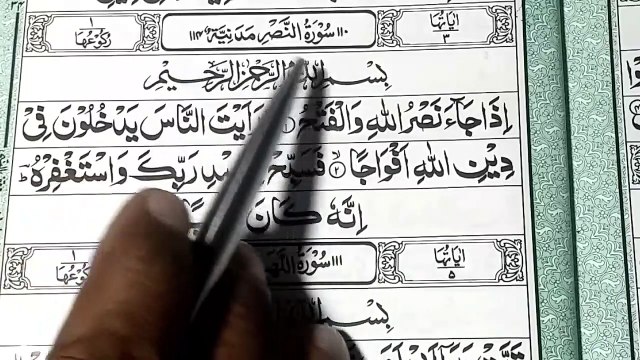 اٰیَاتُهَا ٣ ١١٠ سُوْرَةُ النَّصْرِ مَدَنِيَّةٌ ١١٤ رُكُوْعُهَا ١
بِسْمِ اللّٰهِ الرَّحْمٰنِ الرَّحِيْمِ
اِذَا جَآءَ نَصْرُ اللّٰهِ وَالْفَتْحُ ۙ﴿١﴾ رَاَيْتَ النَّاسَ يَدْخُلُوْنَ فِيْ
دِيْنِ اللّٰهِ اَفْوَاجًا ۙ﴿٢﴾ فَسَبِّحْ رَبِّكَ وَاسْتَغْفِرْهُ ؕ
اِنَّهٗ كَانَ
اٰیَاتُهَا ٥ ١١١ سُوْرَةُ رُكُوْعُهَا ١
بِسْمِ